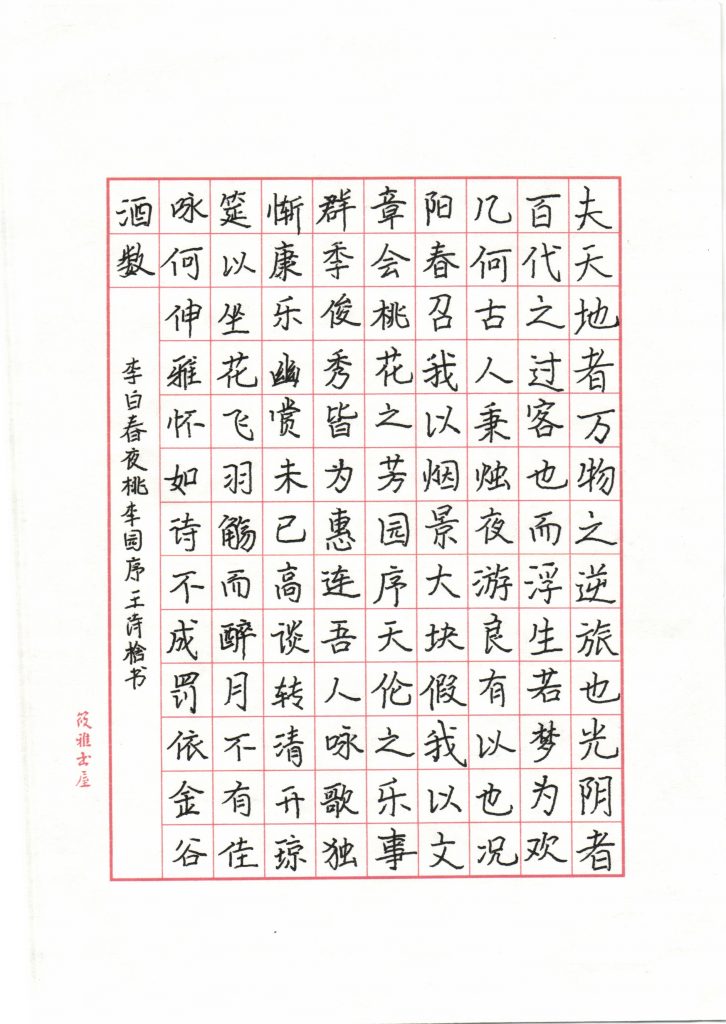 夫天地者万物之逆旅也光阴者
百代之过客也而浮生若梦为欢
几何古人秉烛夜游良有以也况
阳春召我以烟景大块假我以文
章会桃花之芳园序天伦之乐事
群季俊秀皆为惠连吾人咏歌独
惭康乐幽赏未已高谈转清开琼
筵以坐花飞羽觞而醉月不有佳
咏何伸雅怀如诗不成罚依金谷
酒数
李白春夜桃李园序王诗桧书
筱雅书屋